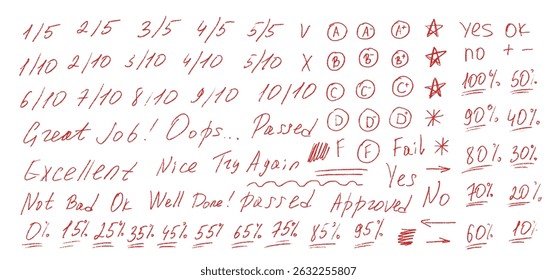 1/5 2/5 3/5 4/5 5/5 V A- A A+ yes ok
1/10 2/10 3/10 4/10 5/10 X B- B B+ no + -
6/10 7/10 8/10 9/10 10/10 C C- C+ 100% 50%
Great Job! Oops... Passed D D- D+ 90% 40%
Excellent Nice Try Again F F Fail 80% 30%
Not Bad Ok Well Done! passed Approved Yes No 70% 20%
0% 15% 25% 35% 45% 55% 65% 75% 85% 95% 60% 10%
shutterstock
IMAGE ID: 2632255807
www.shutterstock.com